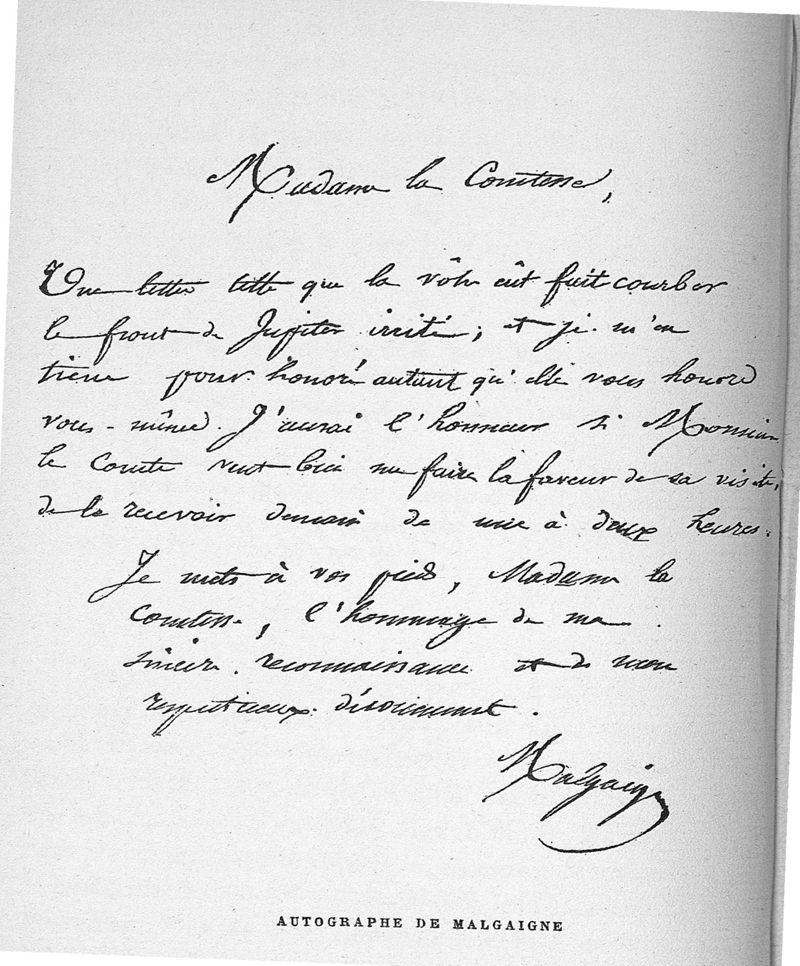 Madame la Comtesse,
Une lettre telle que la vôtre eût fait courber
le front de Jupiter irrité; et je m'en
tiens pour honoré autant qu'elle vous honore
vous-même. J'aurai l'honneur si Monsieur
le Comte veut bien me faire la faveur de sa visite,
de le recevoir demain de une à deux heures.
Je mets à vos pieds, Madame la
Comtesse, l'hommage de ma
sincère reconnaissance et de mon
respectueux dévouement.
Malgaigne
AUTOGRAPHE DE MALGAIGNE